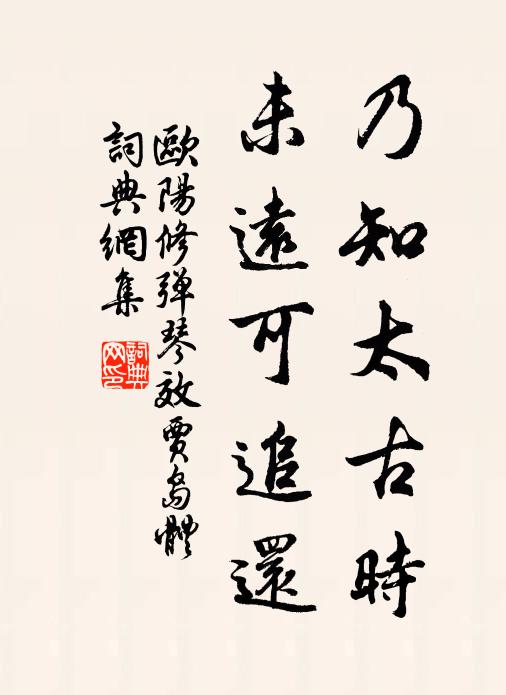 乃知太古時
未遠可追還
歐陽修彈琴效賈島體
詞典網集
詞典
网印